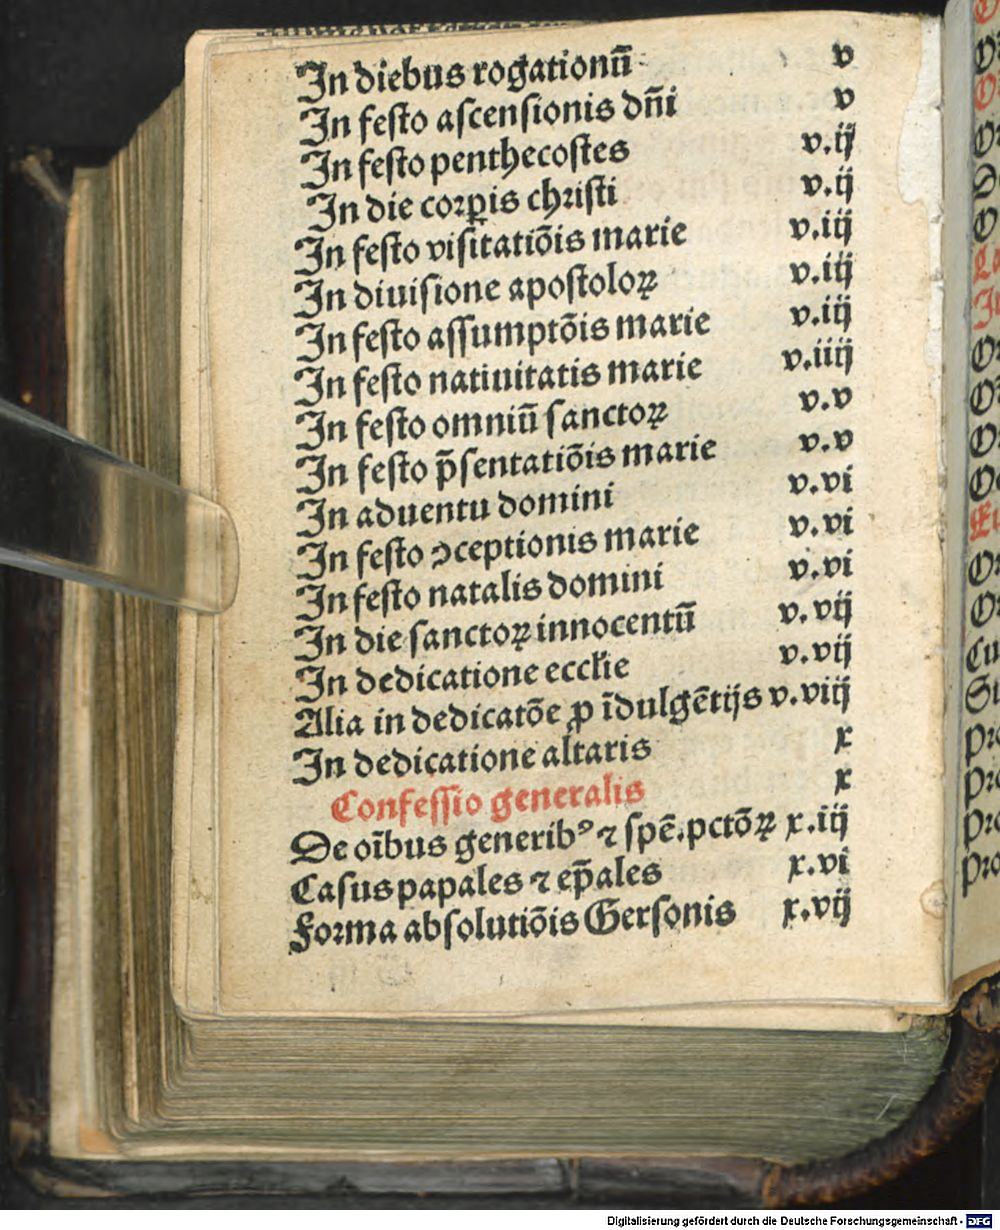 In diebus rogationū v
In festo ascensionis dñi v
In festo penthecostes v.ij
In die corꝑis christi v.ij
In festo visitatiōis marie v.iij
In diuisione apostoloꝝ v.iij
In festo assumptōis marie v.iij
In festo natiuitatis marie v.iiij
In festo omniū sanctoꝝ v.v
In festo p̄sentatiōis marie v.v
In aduentu domini v.vi
In festo ꝯceptionis marie v.vi
In festo natalis domini v.vi
In die sanctoꝝ innocentū v.vij
In dedicatione eccl̄ie v.vij
Alia in dedicatōe ꝓ īdulgētijs v.viij
In dedicatione altaris x
Confessio generalis x
De oībus generibꝰ ⁊ spē.pctōꝝ x.iij
Casus papales ⁊ ep̄ales x.vi
Forma absolutiōis Gersonis x.vij
Digitalisierung gefördert durch die Deutsche Forschungsgemeinschaft - DFG